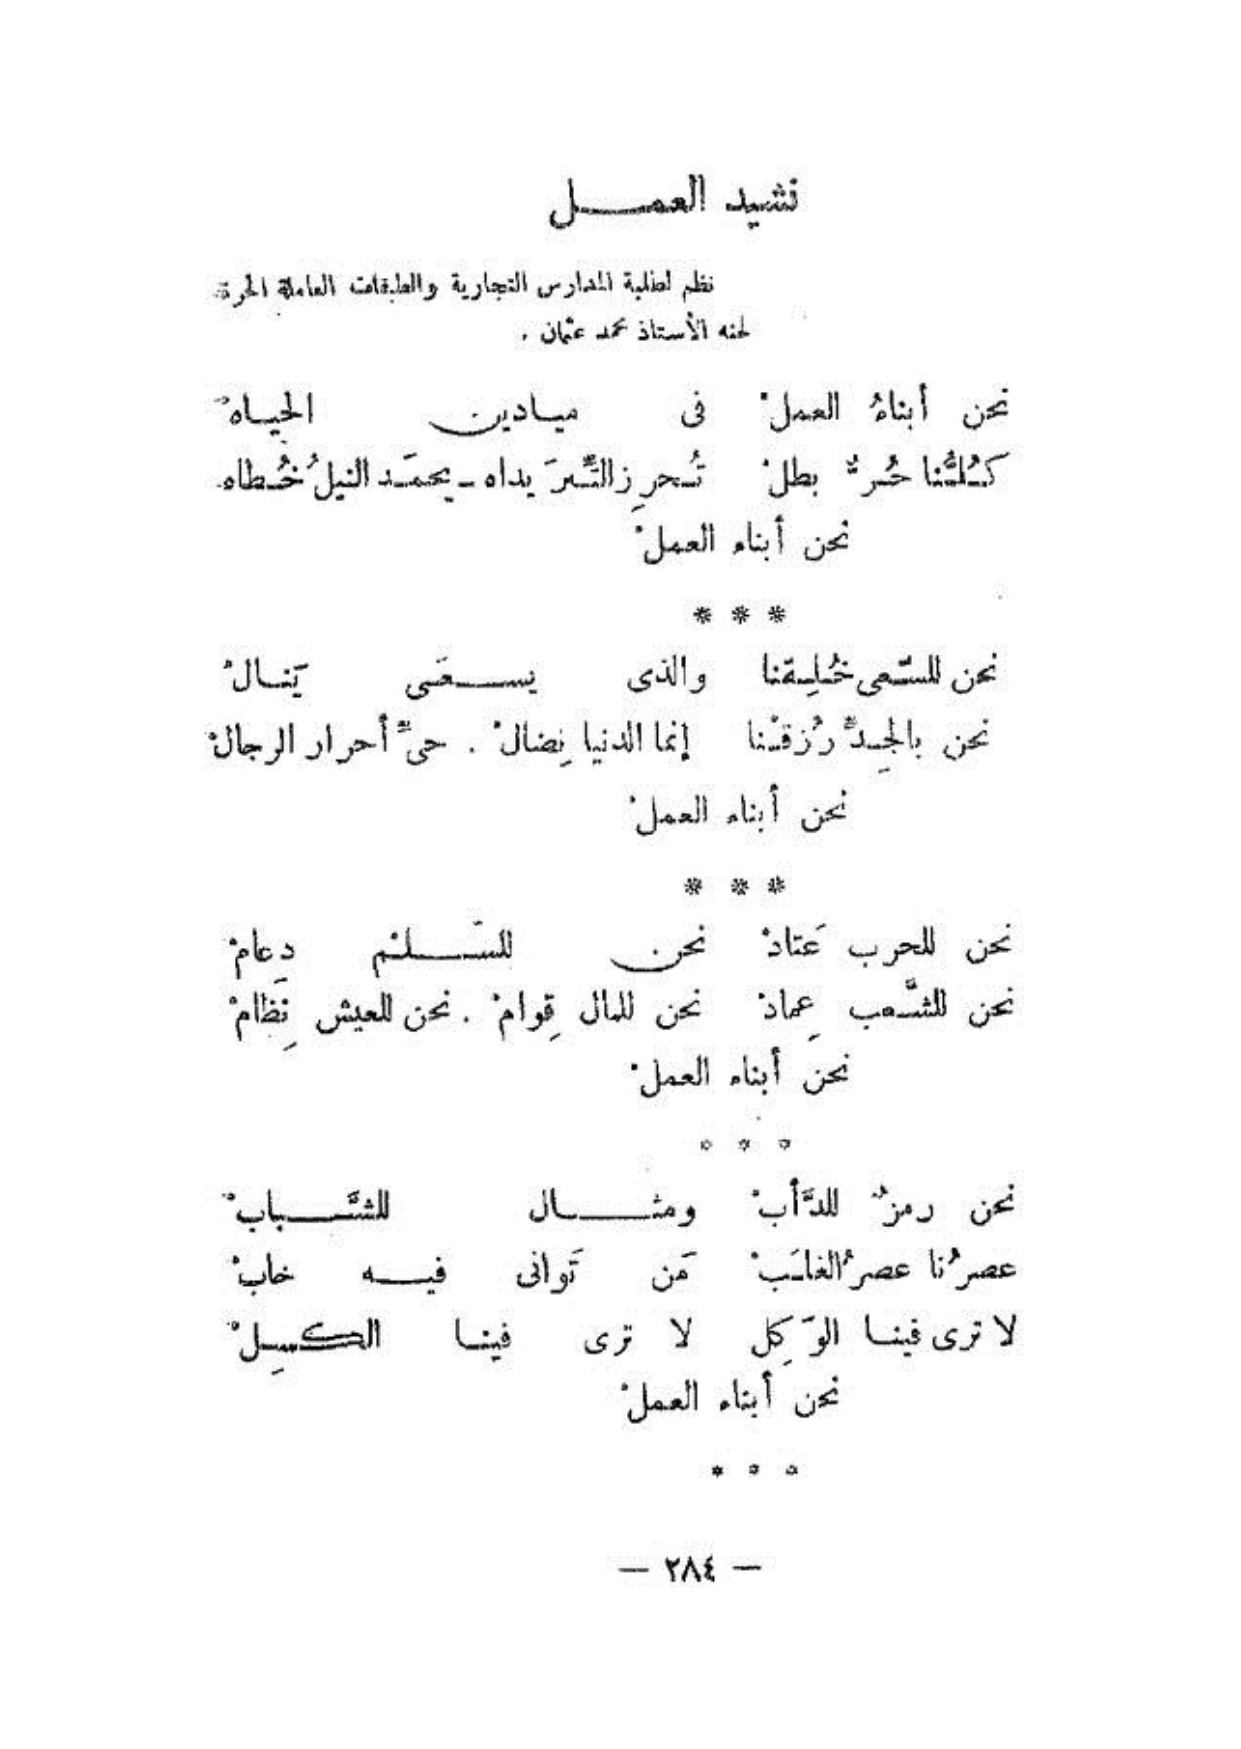 نشيد العمل
نظم لطلبة المدارس التجارية والطبقات العاملة الحرة.
لحنه الأستاذ محمد عثمان .
نحن أبناءُ العملْ في ميادين الحياهْ
كُلُّنا حُرٌّ بطلْ تُحرِز التِّبرَ يداه ـ يحمَد النيلُ خُطاه.
نحن أبناء العملْ
* * *
نحن للسَّعى خُلِقنا والذى يسعَى يَنالْ
نحن بالجِدِّ رُزقْنا إنما الدنيا نِضالْ . حىِّ أحرار الرجالْ
نحن أبناء العملْ
* * *
نحن للحرب عَتادْ نحن للسَّلْم دعامْ
نحن للشَّعب عِمادْ نحن للمال قِوامْ . نحن للعيش نِظامْ
نحن أبناء العملْ
* * *
نحن رمزٌ للدَّأبْ ومثال للشَّبابْ
عصرُنا عصرُ الغلَبْ مَن تَوانى فيه خابْ
لا ترى فينا الوَكِل لا ترى فينا الكسِلْ
نحن أبناء العملْ
* * *
— ٢٨٤ —